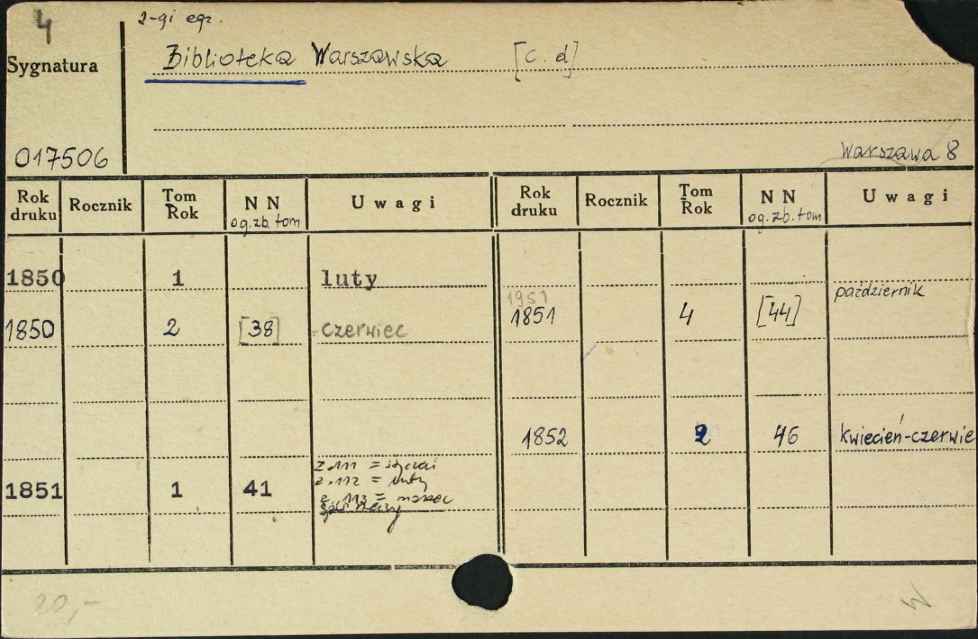 4
2-gi egz.
Sygnatura
Biblioteka Warszawska [c. d]
017506
Warszawa 8
Rok druku Rocznik Tom Rok N N og. zb. tom Uwagi Rok druku Rocznik Tom Rok N N og. zb. tom Uwagi
1850 1 luty
1850 2 [38] czerwiec
1851 1 41
z. 111 = styczeń
z. 112 = luty
z. 113 = marzec
1951
1851 4 [44] październik
1852 2 46 kwiecień-czerwie
20,-